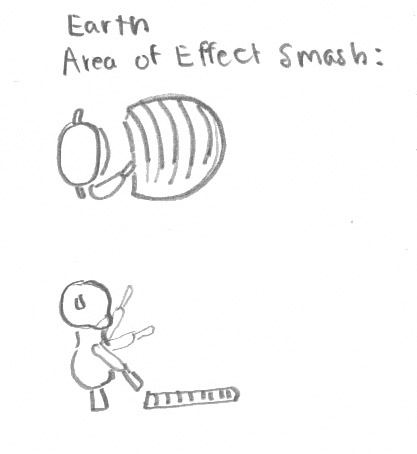 Earth
Area of Effect Smash: